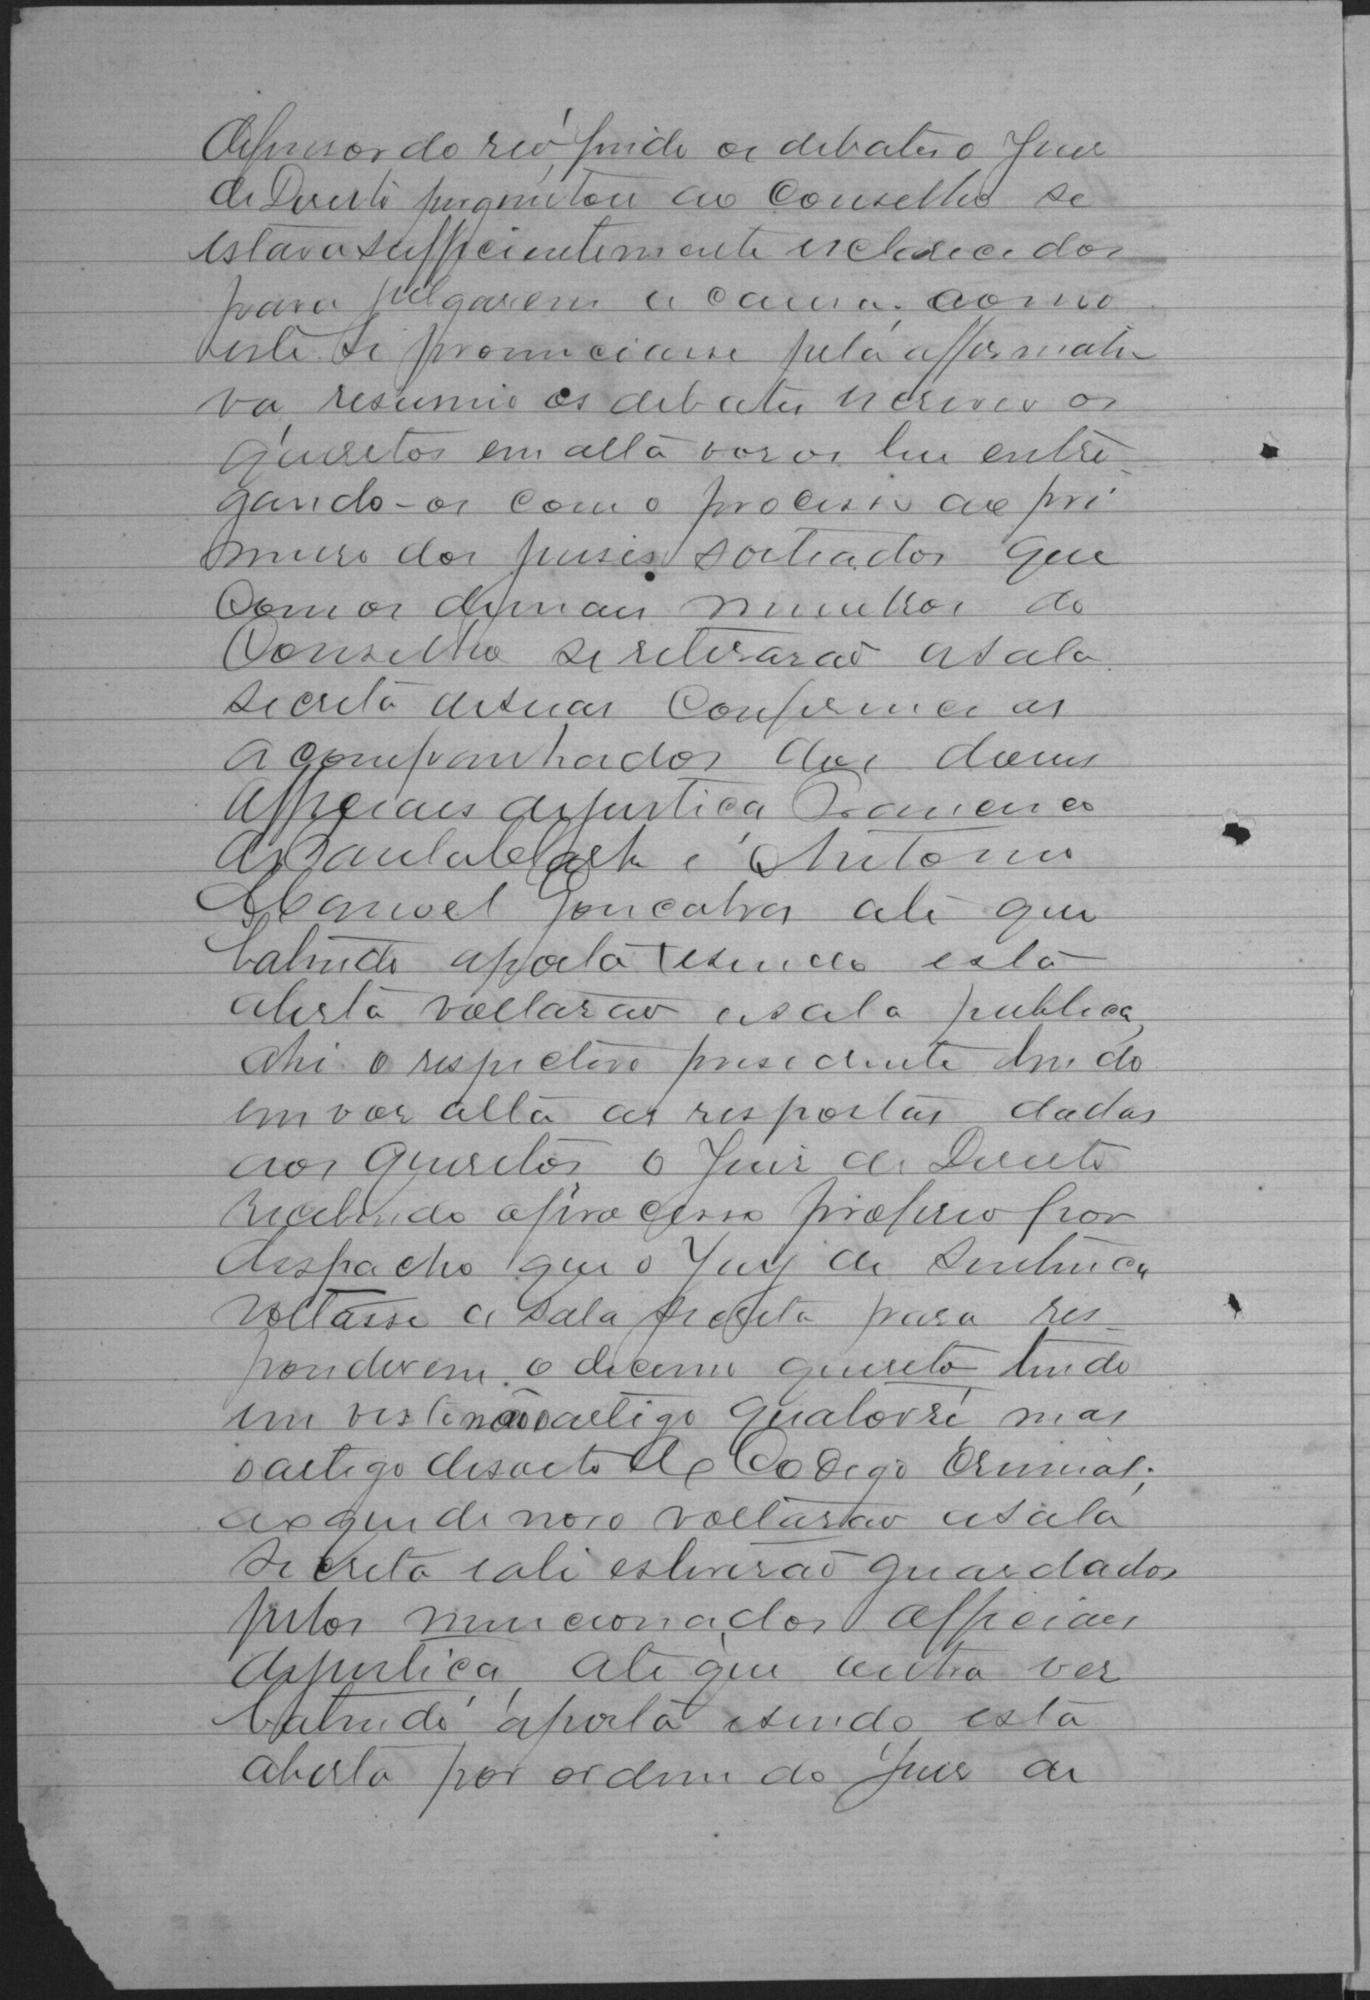 defensor do reó, findo os debates o Juiz
de Direito perguntou ao Conselho se
estava sufficientemente esclarecidos
para julgarem a causa, como
este se pronunciasse pela affirmati
va, resumio os debates escreveo os
quesitos em altá voz os leu entre
gando-os com o processo ao pri
meiro dos juises sorteados que
com os demais membros do
Conselho se retirarão a sala
secretá de suas Conferencias
acompanhados dos dous
officiaes de justiça Francisco
de Paula e António
Manoel Gonçalves até que
batendo a porta e sendo está
abertá voltarão a sala publica,
ahi o respectivo presidente lendo
em voz altá as respostas dadas
aos quesitos o Juiz de Direito
recebendo o processo proferio por
despacho que o Jury de Sentença
voltasse a sala secreta para res-
ponderem o decimo quesito tendo
em vista não o artigo quatorze mas
o artigo desoito do Codigo Criminal;
ao que de novo voltarão a sala
secreta e ali estiverão guardados
pelos mencionados officiaes
de justiça, até que outra vez
batendo á porta e sendo está
abertá por ordem do Juiz de